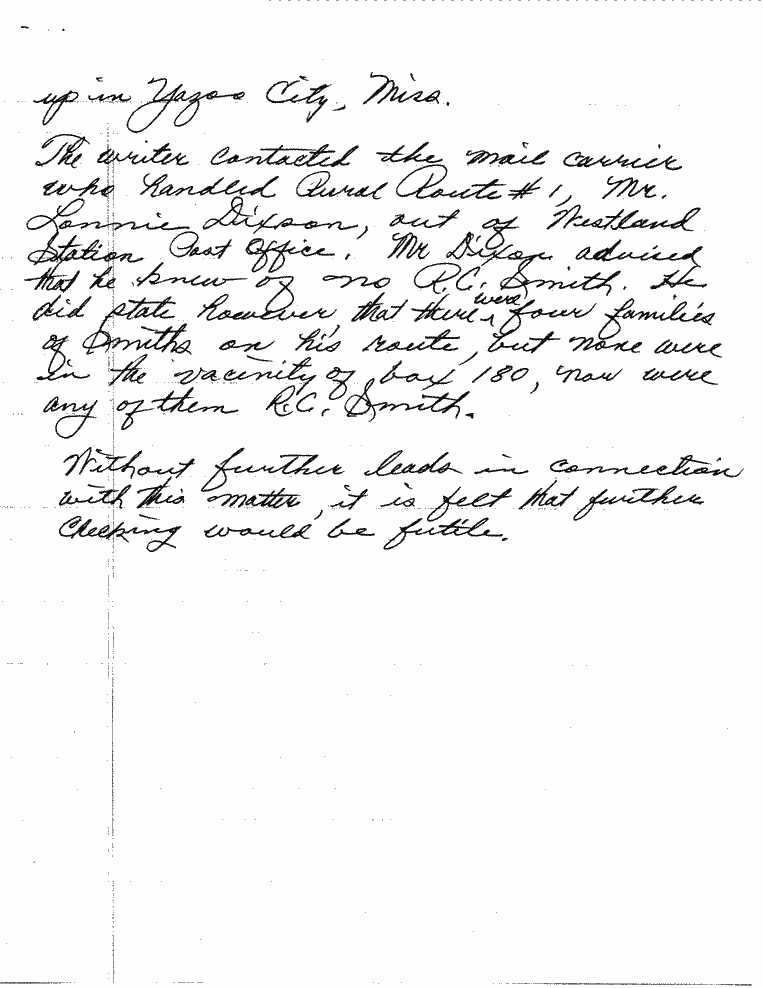 up in Yazoo City, Miss.
The writer contacted the mail carrier
who handled Rural Route # 1, Mr.
Lonnie Dixson, out of Westland
Station Post Office. Mr Dixon advised
that he knew of no R.C. Smith. He
did state however, that there were four families
of Smiths on his route, but none were
in the vacinity of box 180, nor were
any of them R.C. Smith.
Without further leads in connection
with this matter, it is felt that further
checking would be futile.